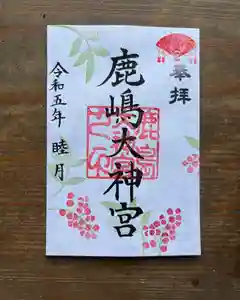 奉拝
鹿嶋大神宮
令和五年 睦月